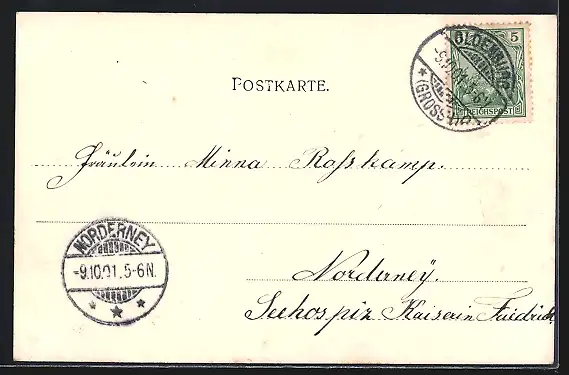 POSTKARTE.
5
REICHSPOST
OLDENBURG
(GROSSH.)
Fräulein Minna Rosskamp.
NORDERNEY
-9.10.01.5-6N.
Norderney.
Seehospiz Kaiserin Friedrich